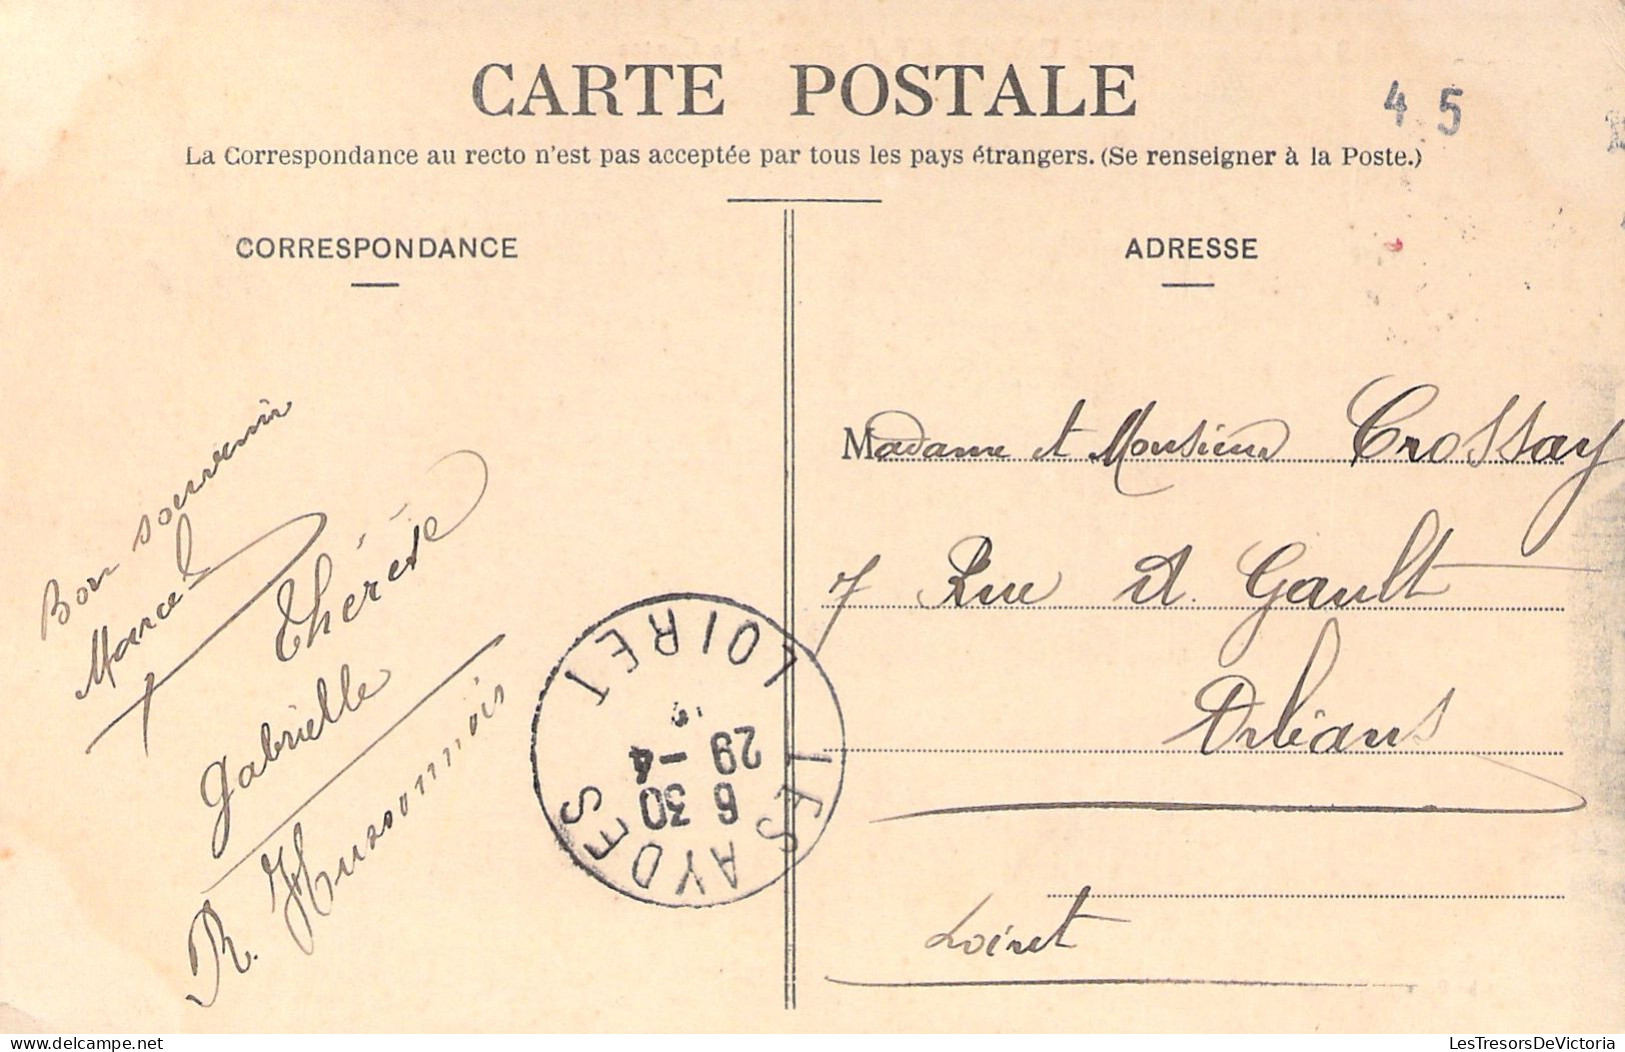 CARTE POSTALE
4 5
La Correspondance au recto n'est pas acceptée par tous les pays étrangers. (Se renseigner à la Poste.)
CORRESPONDANCE
ADRESSE
Bon souvenir
Marcel
Thérèse
Gabrielle
R.
LES AYDES
LOIRET
6 30
29 - 4
Madame et Monsieur Crossay
7 Rue A. Gault
Orléans
Loiret
LesTresorsDeVictoria.com